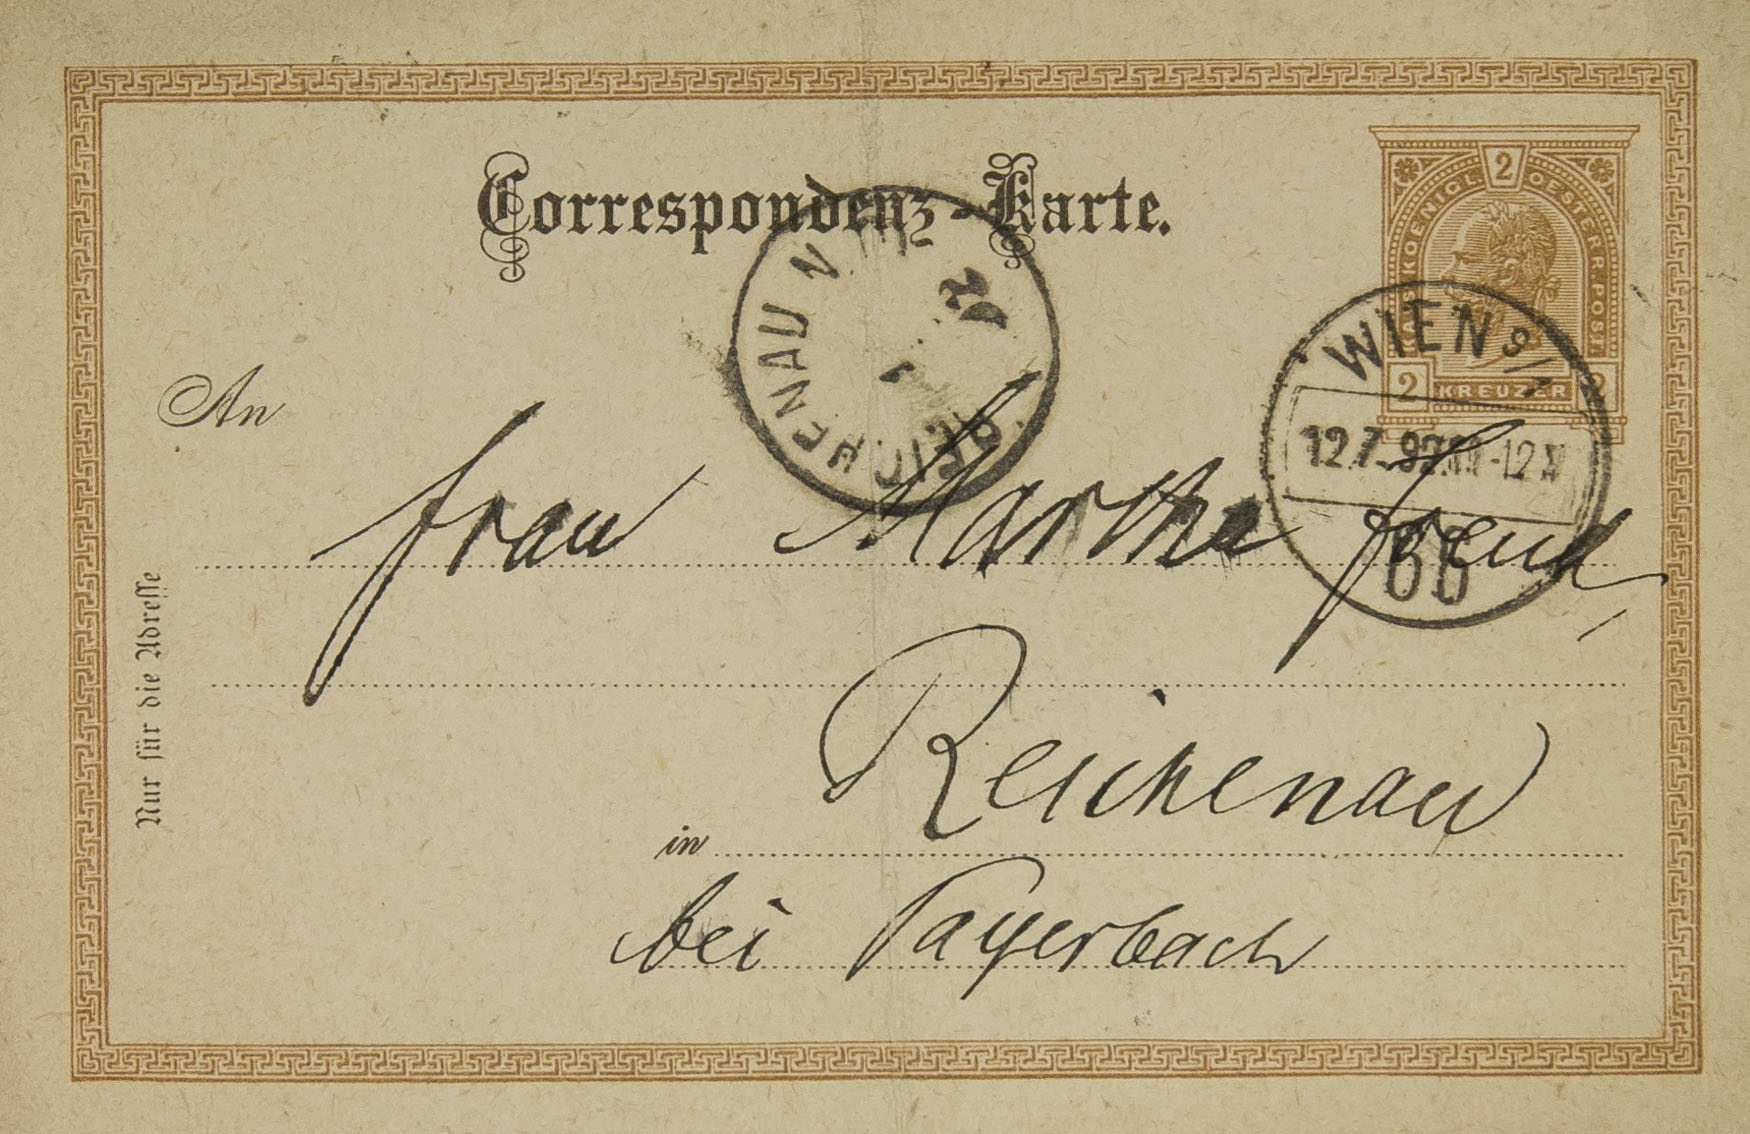 Correspondenz-Karte.
2
KOENIGL OESTERR. POST
2 KREUZER 2
WIEN 9/1
12.7.
66
REICHENAU N
An
Frau Martha Freud,
Nur für die Adresse
in Reichenau
bei Payerbach